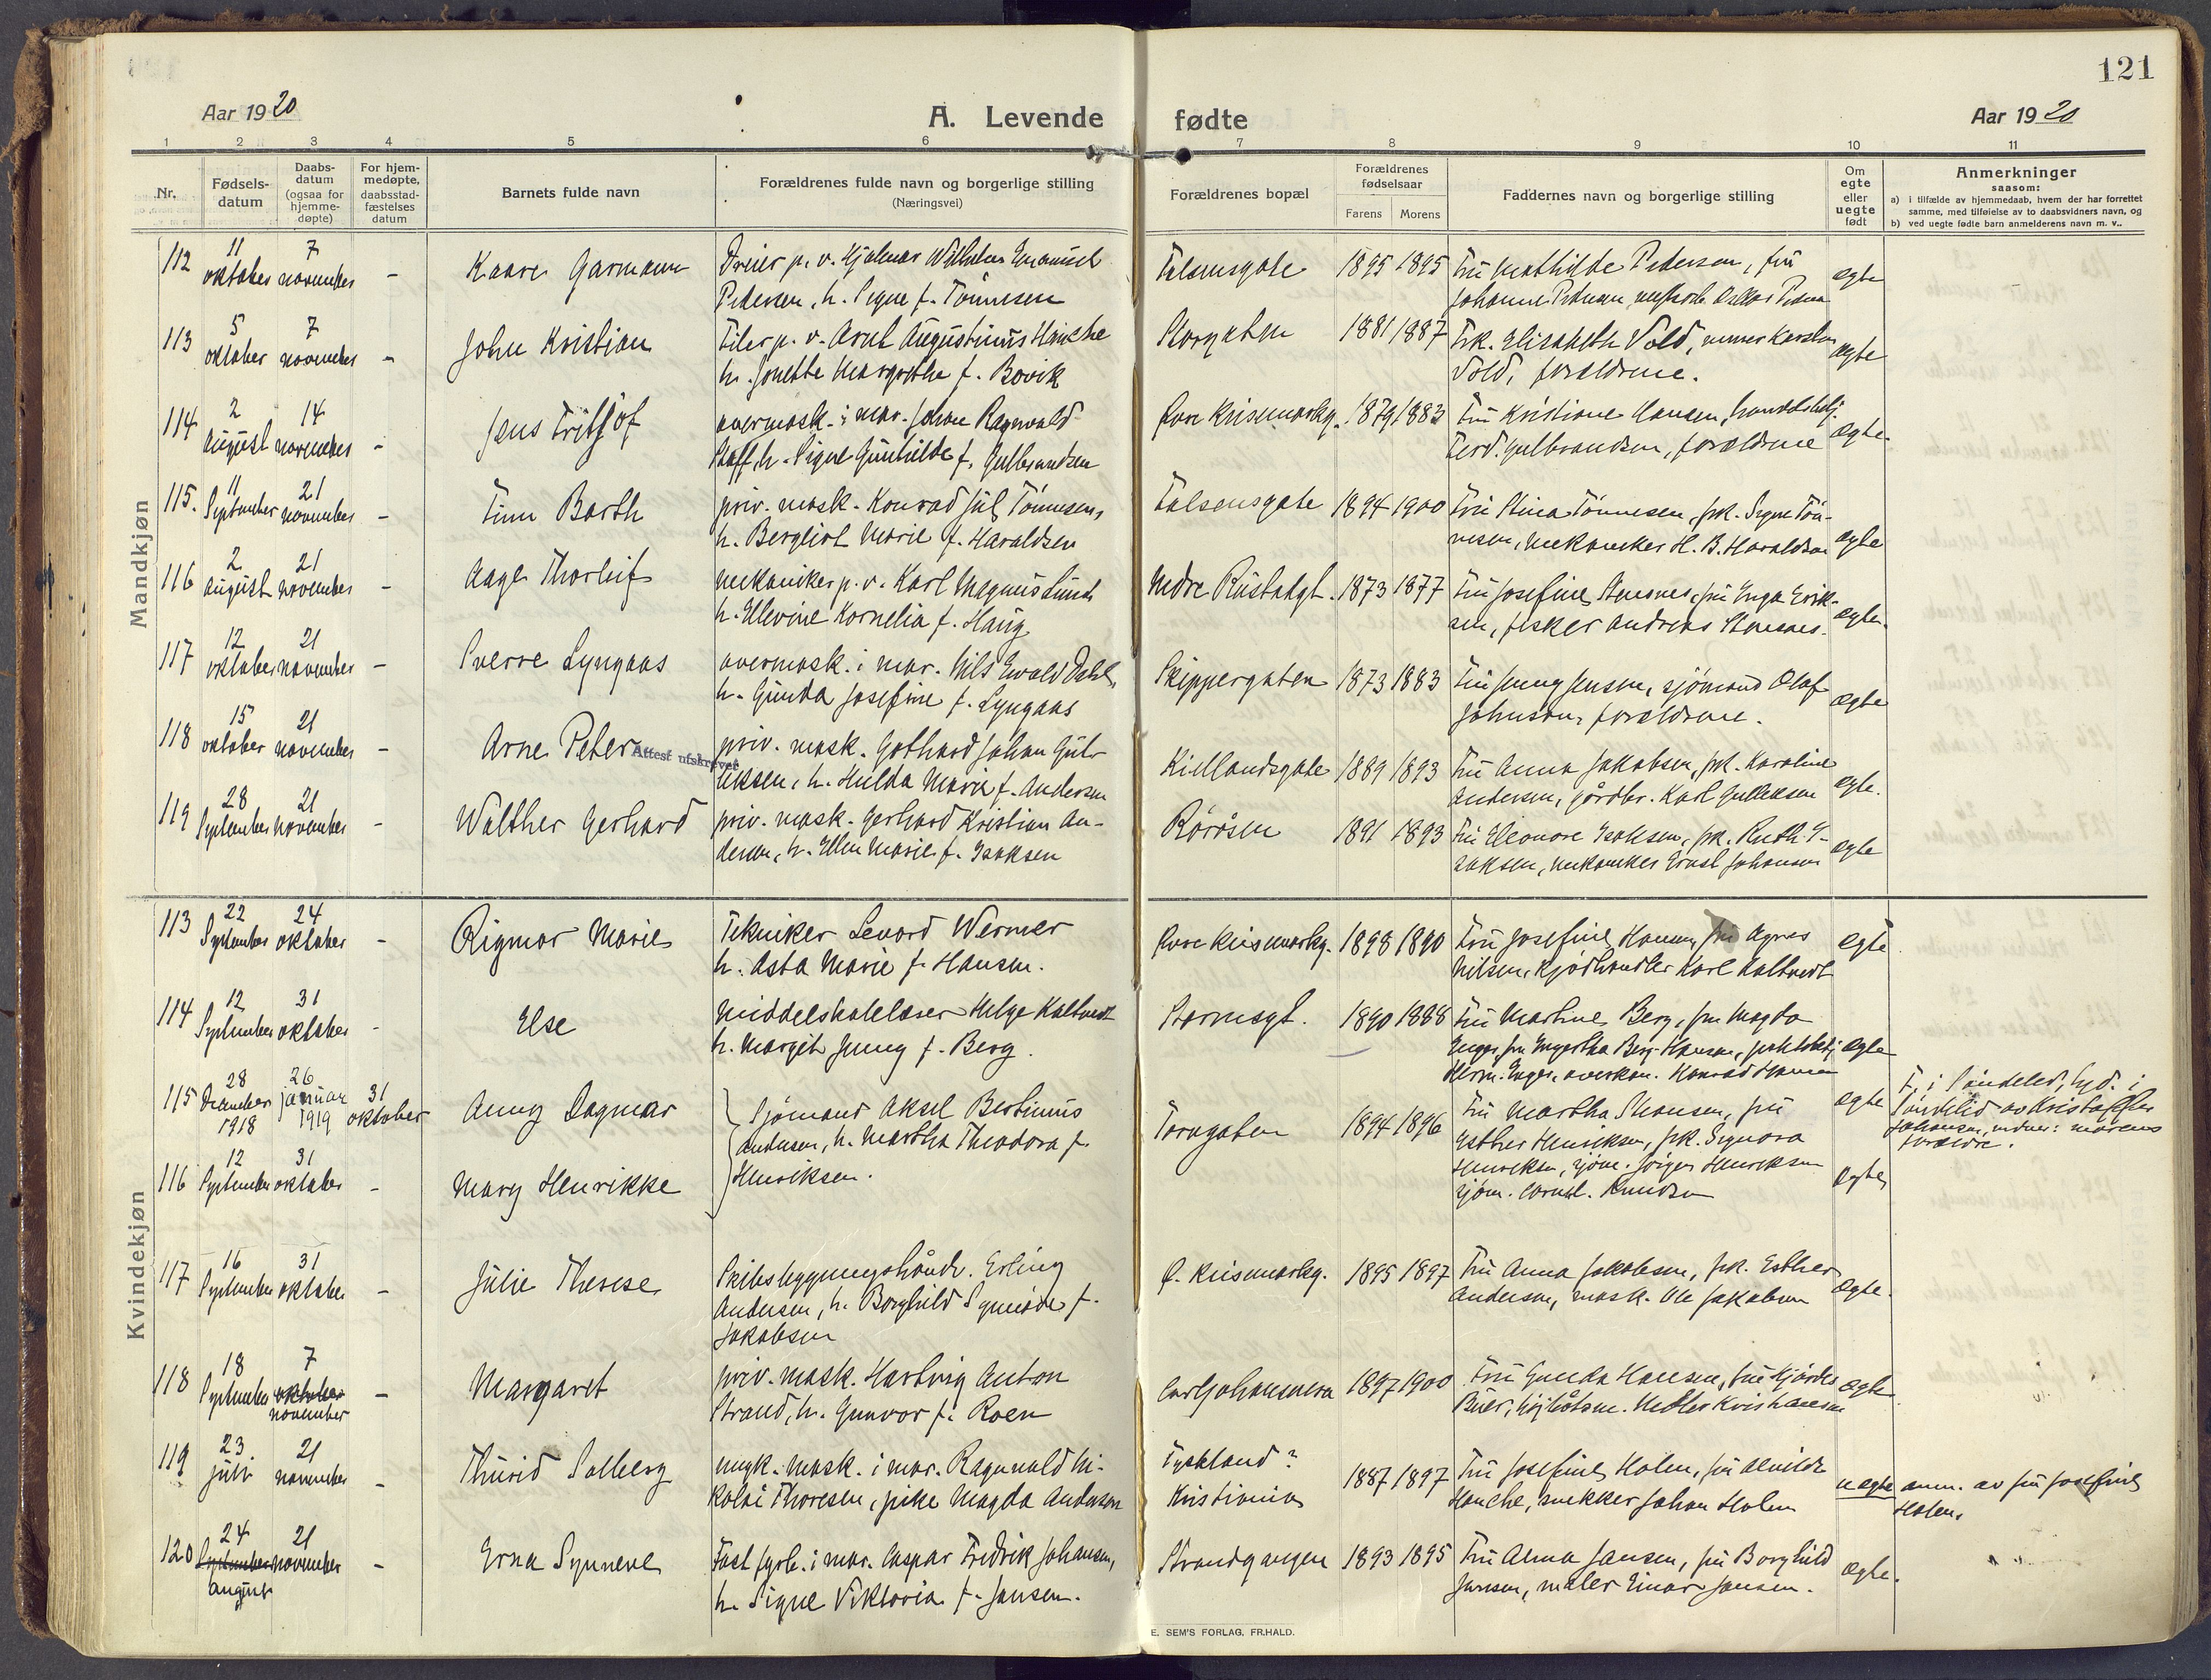 121
Aar 1920
A. Levende
fødte
Aar 1920
1 2 3 4 5 6 7 8 9 10 11
Nr.
Fødsels-
datum
Daabs-
datum
(ogsaa for
hjemme-
døpte)
For hjem-
medøpte,
daabsstad-
fæstelses
datum
Barnets fulde navn
Forældrenes fulde navn og borgerlige stilling
(Næringsvei)
Forældrenes bopæl
Forældrenes
fødselsaar
Farens Morens
Faddernes navn og borgerlige stilling
Om
egte
eller
uegte
født
Anmerkninger
saasom:
a) i tilfælde av hjemmedaab, hvem der har forrettet
samme, med tilføielse av to daabsvidners navn, og
b) ved uegte fødte barn anmelderens navn m. v..
Mandkjøn
112 11 oktober 7 november - Kaare Garmann
Dreier p. v. Hjalmar Wilhelm Emanuel
Pedersen, h. Signe f. Tönnesen
Falsensgate 1895 1895
Fru Mathilde Pedersen, fru
Johanne Pedersen
egte
113 5 oktober 7 november - John Kristian
Filer p. v. Arnt Augustinus Hauche
h. Jonette Margrethe f. Bovik
Storgaten 1881 1887
Frk. Elisabeth Vold, Karsten
Vold, forældrene.
egte
114 2 august 14 november - Jens Fritjof
overmask. i mar. Johan Ragnvald
Staff, h. Signe Gunhilde f. Gulbrandsen
1879 1883
Fru Kristiane Hansen,
Ferd. Gulbrandsen, forældrene
egte.
115. 11 September 21 november - Finn Barth
priv. mask. Konrad Jul. Tönnesen,
h. Bergliot Marie f. Haraldsen
Falsensgate 1894 1900
Fru Stina Tönnesen, frk. Signe Tön-
nesen, mekaniker H. B. Haraldsen
egte
116 2 august 21 november - Aage Thorleif
mekaniker p. v. Karl Magnus Lund
h. Ellevine Kornelia f. Haug
Nedre Rustadgt. 1873 1877
Fru Josefine Stensnes, fru Inga Erik-
sen, fisker Andreas Stensnes.
egte.
117 12 oktober 21 november - Sverre Lyngaas
overmask. i mar. Nils Ewald Dahl,
h. Gunda Josefine f. Lyngaas
Skippergaten 1873 1883
Fru Jenny Jensen, sjömand Olaf
Johnson, forældrene.
egte
118 15 oktober 21 november - Arne Peter
Attest utskrevet
priv. mask. Gothard Johan Gul-
liksen, h. Hulda Marie f. Andersen
Kiellandsgate 1889 1893
Fru Anna Jakobsen, frk. Karoline
Andersen, gårdbr. Karl Gulliksen
egte.
119 28 September 21 november - Walther Gerhard
priv. mask. Gerhard Kristian An-
dersen, h. Ellen Marie f. Isaksen
Röråsen 1891 1893
Fru Eleonore Isaksen, frk. Ruth I-
saksen, mekaniker Ernst Johansen
egte
Kvindekjøn
113 22 September 24 oktober - Rigmor Marie
Tekniker Lenard Werner
h. Asta Marie f. Hansen.
1898 1890
Fru Josefine Hansen, fru Agnes
Nilsen, kjödhandler Karl Kaltvedt
egte
114 12 September 31 oktober - Else
Middelskolelærer Helge Kaltvedt
h. Margit Jenny f. Berg.
Stormsgt. 1890 1888
Fru Martine Berg, fru Magda
egte
115 28 December 1918 26 januar 1919 31 oktober Anny Dagmar
Sjömand Aksel Bertinius
Andersen, h. Martha Theodora f.
Henriksen.
Torvgaten 1894 1896
Fru Martha Thansen, fru
Esther Henriksen, frk. Signora
Henriksen, sjöm. Jörgen Henriksen
sjöm. Knudsen
egte
F. i Söndeled, av Kristoffer
Johansen, vidner: morens
forældre.
116 12 September 31 oktober - Mary Henrikke
egte
117 16 September 31 oktober - Julie Therese
Skibsbygningshåndv. Erling
Andersen, h. Borghild Synnöve f.
Jakobsen
1895 1897
Fru Anna Jakobsen, frk. Esther
Andersen, mask. Ole Jakobsen
egte.
118 18 September 7 oktober november - Margaret
priv. mask. Hartvig Anton
Strand, h. Gunvor f. Roen
1897 1900
Fru Gunda Hansen, fru Hjördis
egte
119 23 juli 21 november - Thurid Solberg
mask. i mar. Ragnvald Ni-
kolai Thoresen, pike Magda Anderson
Tyskland?
Kristiania
1887 1897
Fru Josefine Holen, fru Alvilde
Hauche, snekker Johan Holen
uegte
anm. av fru Josefine
Holen.
120 24 September august 21 november - Erna Synneve
Fast fyrb. i mar. Caspar Fredrik Johansen,
h. Signe Viktoria f. Jansen.
Strandgangen 1893 1895
Fru Alma Jansen, fru Borghild
Jansen, maler Einar Jansen.
egte.
E. SEM'S FORLAG, FR.HALD.